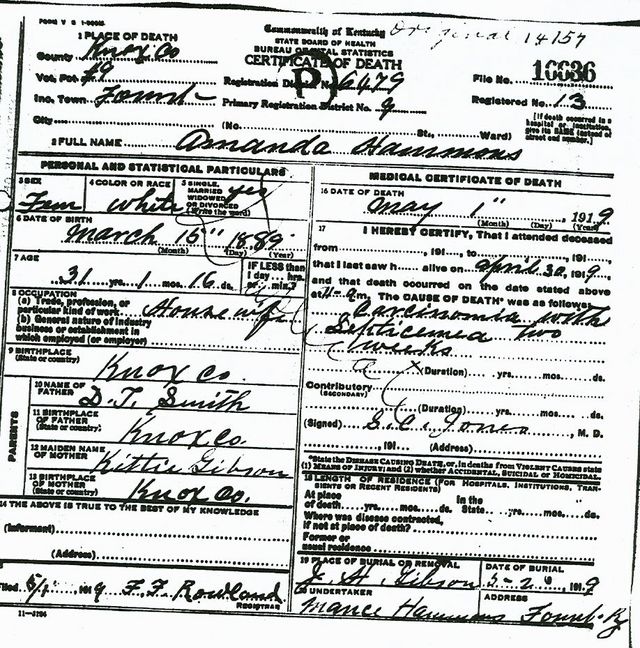 FORM V S 1-
Commonwealth of Kentucky Original 14157
STATE BOARD OF HEALTH
BUREAU OF VITAL STATISTICS
CERTIFICATE OF DEATH
1 PLACE OF DEATH
County Knox Co
Vot. Pct. #9
Inc. Town Fount
City
(No. St., Ward)
Registration District No. 6479
Primary Registration District No. 9
File No. 16636
Registered No. 13
[If death occurred in a hospital or institution, give its NAME instead of street and number.]
2 FULL NAME Amanda Hammons
PERSONAL AND STATISTICAL PARTICULARS
3 SEX
Fem
4 COLOR OR RACE
white
5 SINGLE, MARRIED WIDOWED OR DIVORCED (Write the word)
yes
6 DATE OF BIRTH
March 15" 1889
(Month) (Day) (Year)
7 AGE
31 yrs. 1 mos. 16 ds.
IF LESS than 1 day... hrs. or... min.?
8 OCCUPATION
(a) Trade, profession, or particular kind of work Housewife
(b) General nature of industry business or establishment in which employed (or employer)
9 BIRTHPLACE
(State or country) Knox Co.
PARENTS
10 NAME OF FATHER D. T. Smith
11 BIRTHPLACE OF FATHER (State or country) Knox Co.
12 MAIDEN NAME OF MOTHER Kittie Gibson
13 BIRTHPLACE OF MOTHER (State or country) Knox Co.
14 THE ABOVE IS TRUE TO THE BEST OF MY KNOWLEDGE
(Informant)
(Address)
Filed 5/1 1919 F. F. Rowland
REGISTRAR
11-3184
MEDICAL CERTIFICATE OF DEATH
16 DATE OF DEATH
May 1" , 1919
(Month) (Day) (Year)
17 I HEREBY CERTIFY, That I attended deceased
from , 191 , to , 191 ,
that I last saw h alive on April 30, 1919,
and that death occurred on the date stated above
at 11-a m. The CAUSE OF DEATH* was as follows:
Carcinomia with
Septicemea two
weeks
(Duration) yrs. mos. ds.
Contributory
(SECONDARY)
(Duration) yrs. mos. ds.
(Signed) Jones , M. D.
, 191 (Address)
*State the DISEASE CAUSING DEATH, or, in deaths from VIOLENT CAUSES state (1) MEANS OF INJURY; and (2) whether ACCIDENTAL, SUICIDAL OR HOMICIDAL.
18 LENGTH OF RESIDENCE (FOR HOSPITALS, INSTITUTIONS, TRANSIENTS OR RECENT RESIDENTS)
At place of death yrs. mos. ds. In the State yrs. mos. ds.
Where was disease contracted, if not at place of death?
Former or usual residence
19 PLACE OF BURIAL OR REMOVAL
Gibson
DATE OF BURIAL
5-2" 1919
20 UNDERTAKER
Mance Hammons
ADDRESS
Fount Ky